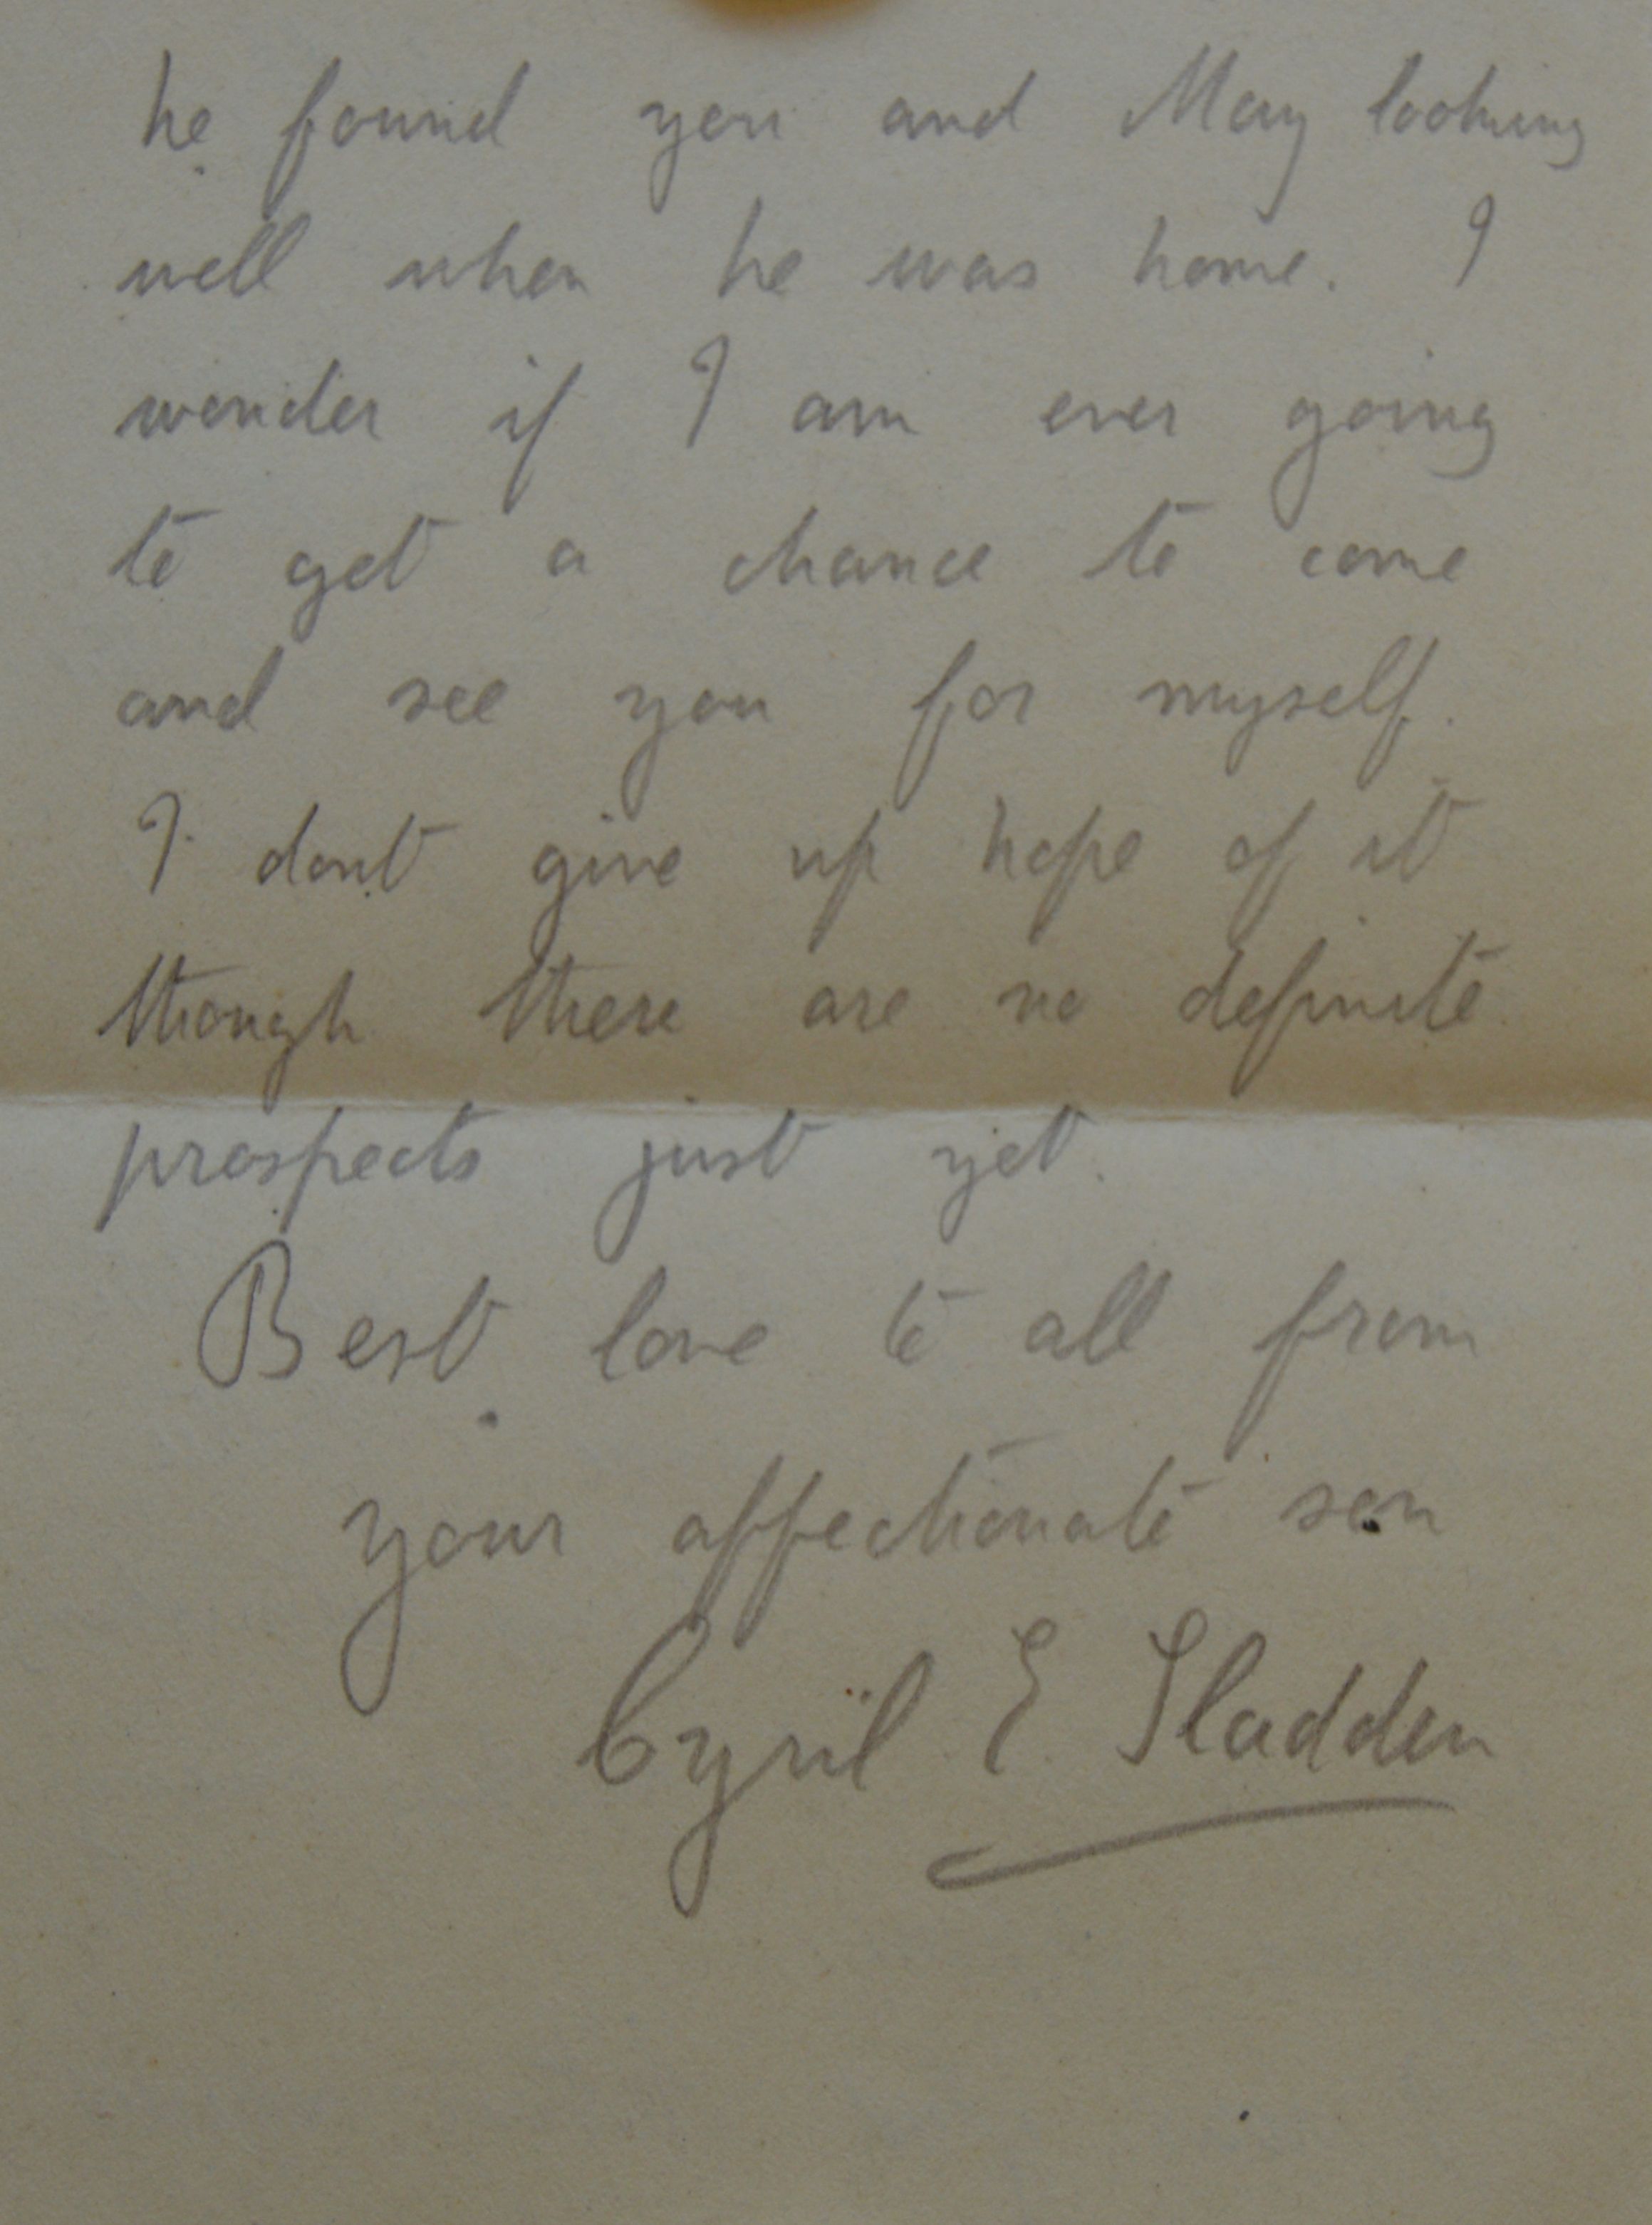 he found you and May looking
well when he was home. I
wonder if I am ever going
to get a chance to come
and see you for myself.
I dont give up hope of it
though there are no definite
prospects just yet.
Best love to all from
your affectionate son
Cyril E Sladden